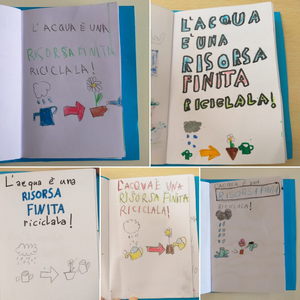 L'ACQUA È UNA
RISORSA FINITA
RICICLALA!
L'ACQUA
E'UNA
RISORSA
FINITA
RICICLALA!
L'acqua è una
RISORSA
FINITA
riciclala!
L'ACQUA È UNA
RISORSA FINITA
RICICLALA!
L'ACQUA È UNA
RISORSA FINITA
RICICLALA!